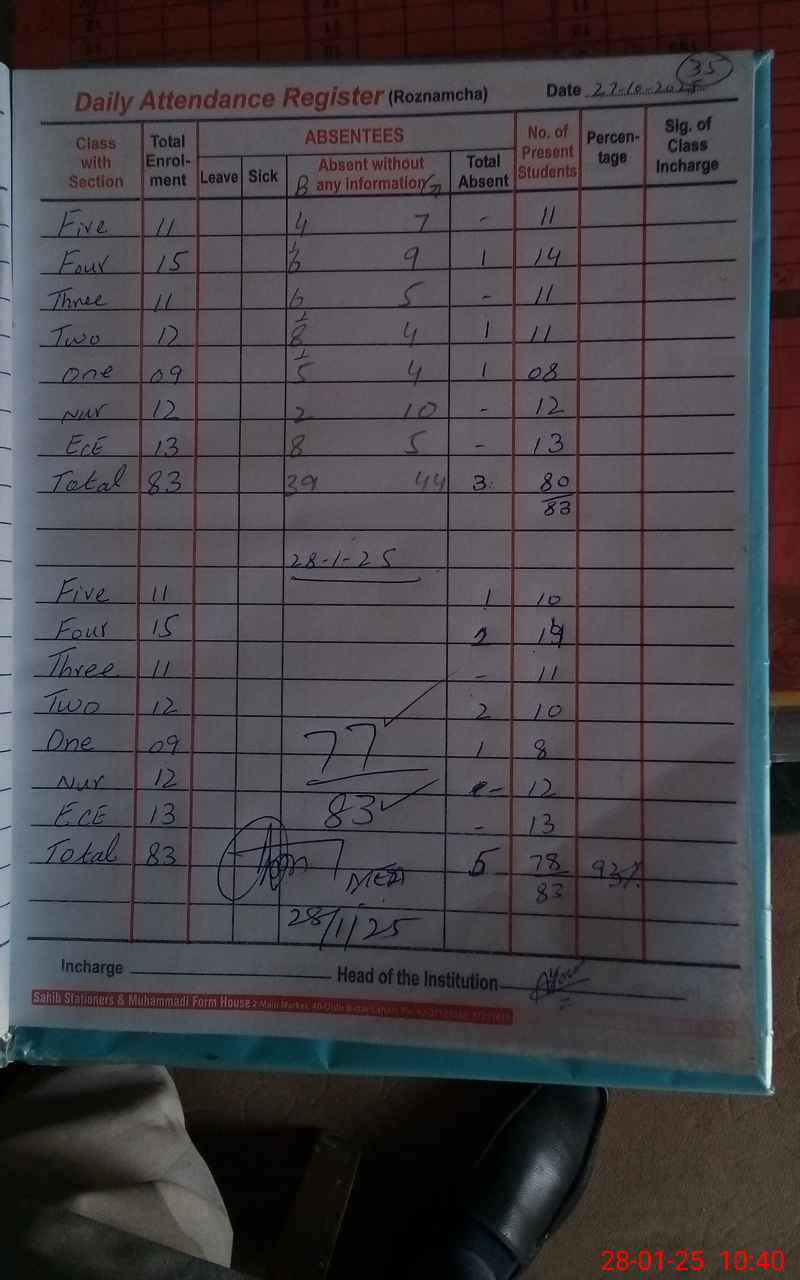 35
Daily Attendance Register (Roznamcha) Date 27-10-2025
Class with Section Total Enrol-ment ABSENTEES No. of Present Students Percen-tage Sig. of Class Incharge
Leave Sick Absent without any information Total Absent
B G
Five 11 4 7 - 11
Four 15 6 9 1 14
Three 11 6 5 - 11
Two 12 8 4 1 11
One 09 5 4 1 08
Nur 12 2 10 - 12
ECE 13 8 5 - 13
Total 83 39 44 3 80
83
28-1-25
Five 11 1 10
Four 15 14
Three 11 - 11
Two 12 2 10
One 09 77 1 8
Nur 12 - 12
ECE 13 83 - 13
Total 83 5 78 93%
MEA 83
28/1/25
Incharge Head of the Institution
Sahib Stationers & Muhammadi Form House 2-Main Market,
28-01-25 10:40